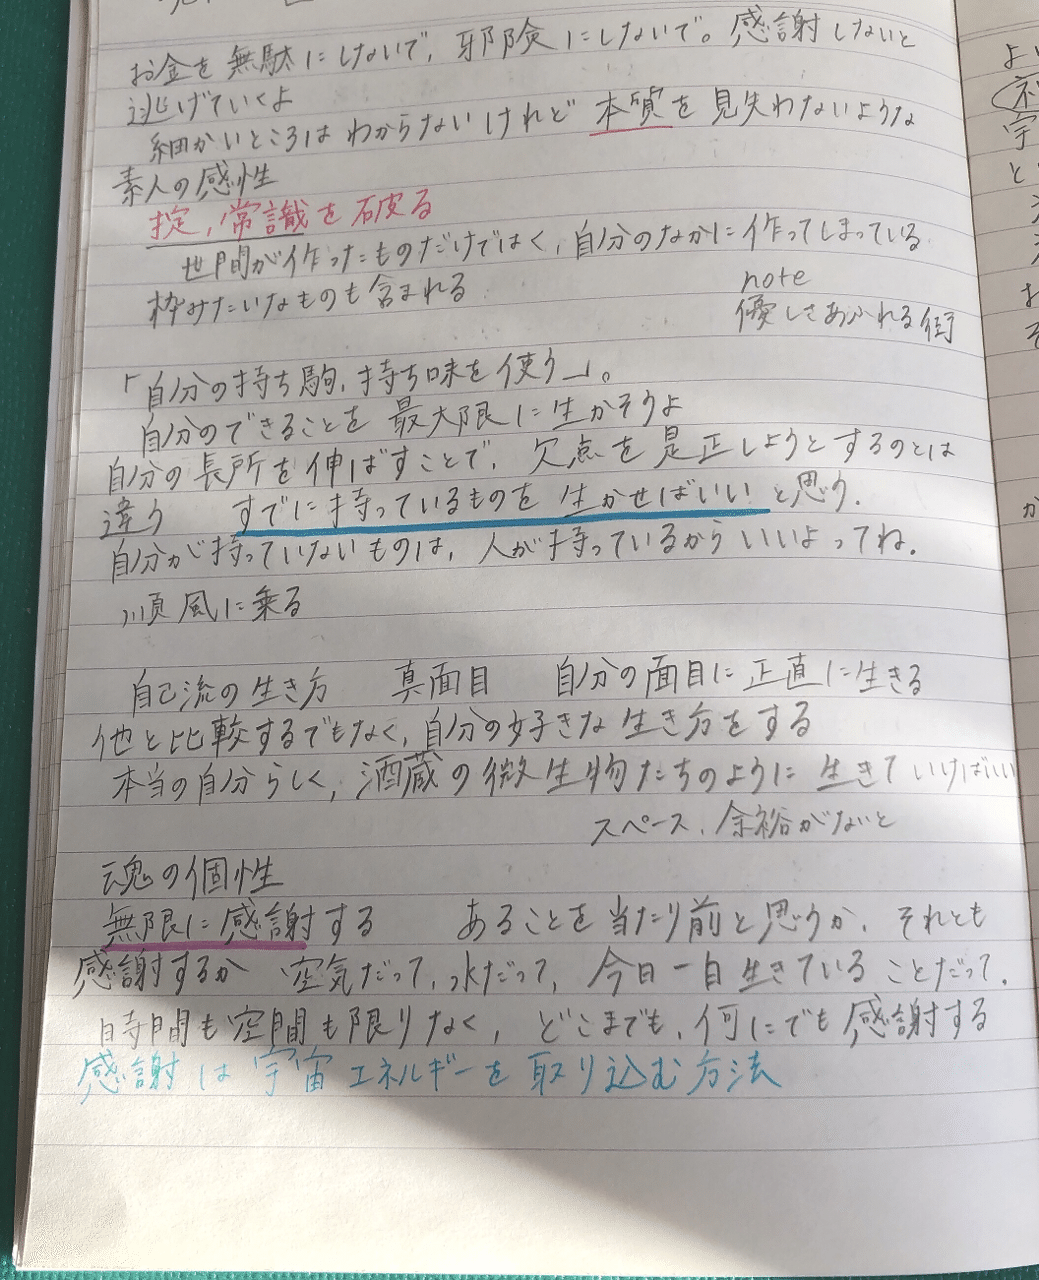 お金を無駄にしないで，邪険にしないで。感謝しないと
逃げていくよ
細かいところはわからないけれど 本質を見失わないような
素人の感性
掟，常識を破る
世間が作ったものだけではく，自分のなかに作ってしまっている
枠みたいなものも含まれる
note
優しさあふれる街
「自分の持ち駒，持ち味を使う」。
自分のできることを最大限に生かそうよ
自分の長所を伸ばすことで，欠点を是正しようとするのとは
違う すでに持っているものを生かせばいい と思う．
自分が持っていないものは，人が持っているからいいよってね．
順風に乗る
自己流の生き方 真面目 自分の面目に正直に生きる
他と比較するでもなく，自分の好きな生き方をする
本当の自分らしく，酒蔵の微生物たちのように生きていけばいい
スペース，余裕がないと
魂の個性
無限に感謝する あることを当たり前と思うか，それとも
感謝するか 空気だって，水だって，今日一日生きていることだって．
時間も空間も限りなく，どこまでも，何にでも感謝する
感謝は宇宙エネルギーを取り込む方法
よ
宇
と
お
そ
か